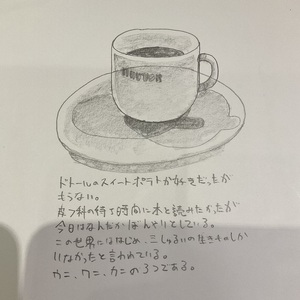 ドトールのスイートポテトが好きだったが
もうない。
皮フ科の待ち時間に本を読みたかったが
今日はなんだかぼんやりとしている。
この世界にははじめ、三しゅるいの生きものしか
いなかったと言われている。
ウニ、ワニ、カニの3つである。